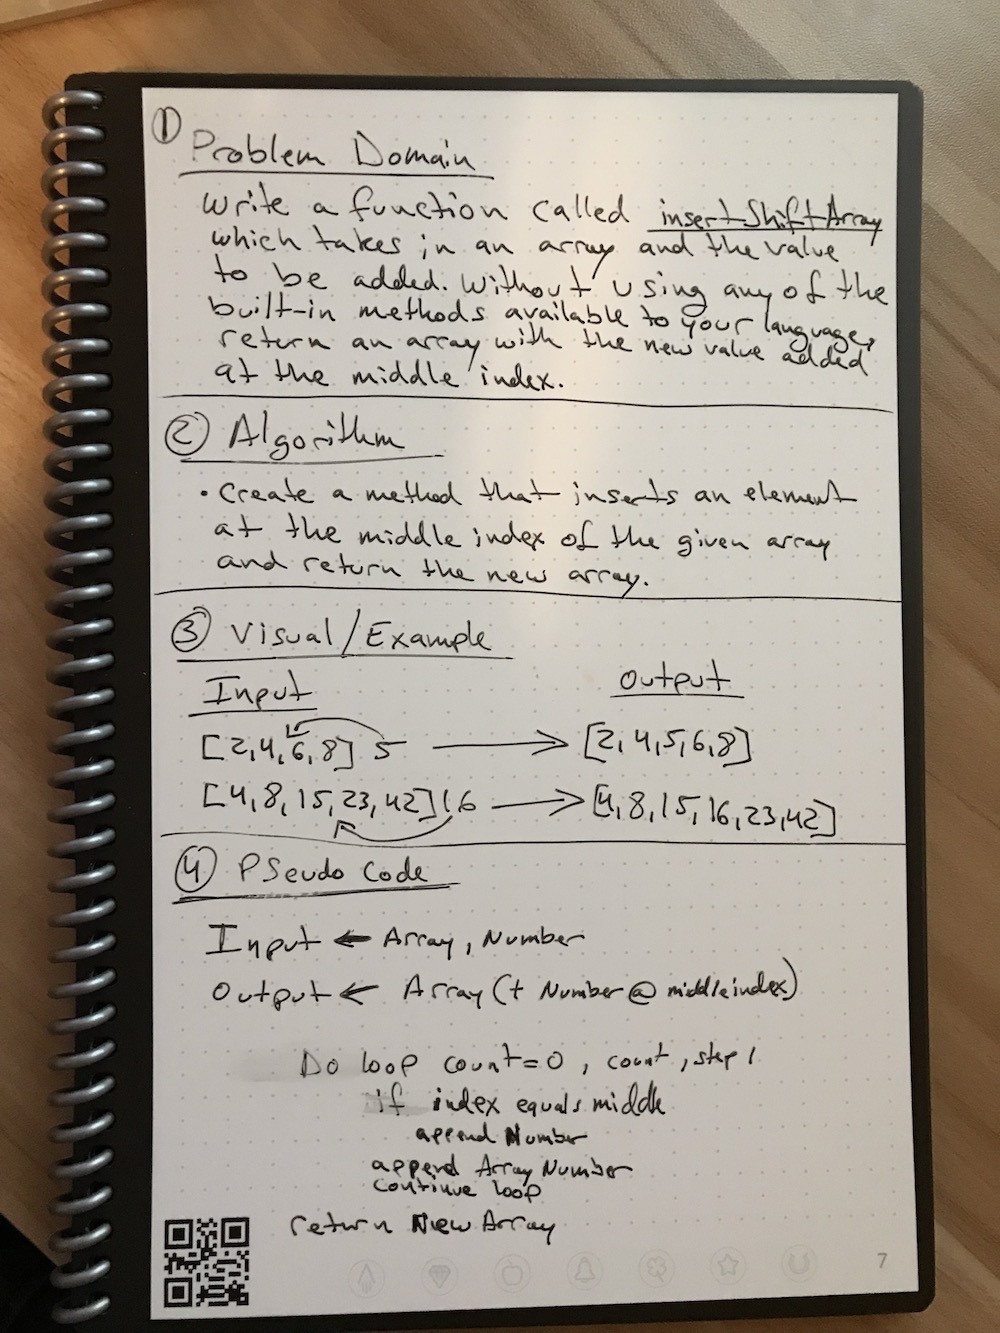 ① Problem Domain
Write a function called insertShiftArray
which takes in an array and the value
to be added. Without using any of the
built-in methods available to your language,
return an array with the new value added
at the middle index.
② Algorithm
• Create a method that inserts an element
at the middle index of the given array
and return the new array.
③ Visual/Example
Input Output
[2,4,6,8] 5 → [2,4,5,6,8]
[4,8,15,23,42] 16 → [4,8,15,16,23,42]
④ PSeudo Code
Input ← Array, Number
Output ← Array (+ Number @ middle index)
Do loop count=0, count, step 1
if index equals middle
append Number
append Array Number
continue loop
return New Array
7